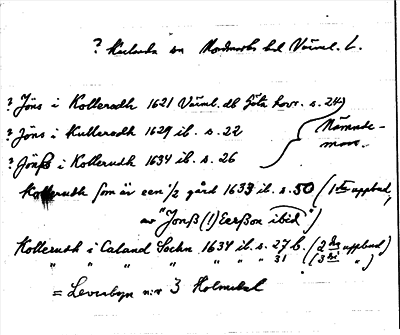 ? Kullerudh en Nordmarks hd Värml. L.
? Jöns i Kolleredh 1621 Värml. db Göta hovr. s. 24
? Jöns i Kulleredh 1629 ib. s. 22
Nämnde-
man.
? Jönß i Kolleruth 1634 ib. s. 26
Kolleruth som är een 1/2 gård 1633 ib. s. 50 (1sta uppbud,
av "Jonß (!) Eerßon ibid")
Kolleruth i Caland Sochn 1634 ib. s. 27 b. (2 dra uppbud)
" " " " " " " 31 (3 di ")
= Leverbyn n:r 3 Holmedal